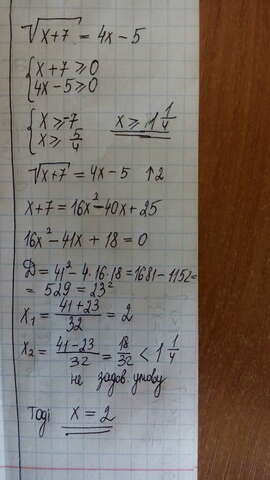 √x+7 = 4x-5
{x+7≥0
4x-5≥0
{x≥-7
x≥ 5/4
x≥ 1 1/4
√x+7 = 4x-5 ↑2
x+7=16x²-40x+25
16x²-41x+18=0
D=41²-4·16·18=1681-1152=
= 529=23²
x₁= 41+23/32 = 2
x₂= 41-23/32 = 18/32 < 1 1/4
не задов. умову
Тоді x=2